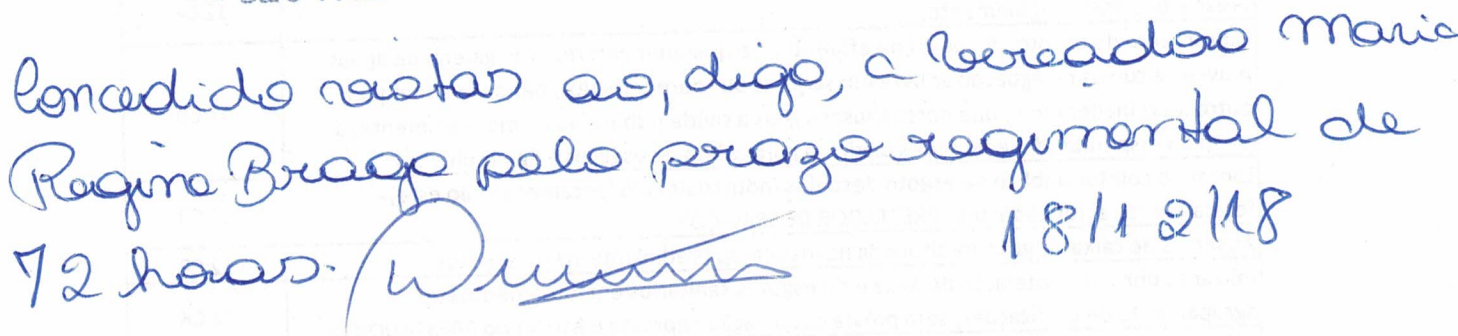 Concedido vistas ao, digo, a Vereadora Maria
Regina Braga pelo prazo regimental de
72 horas. 18/12/18